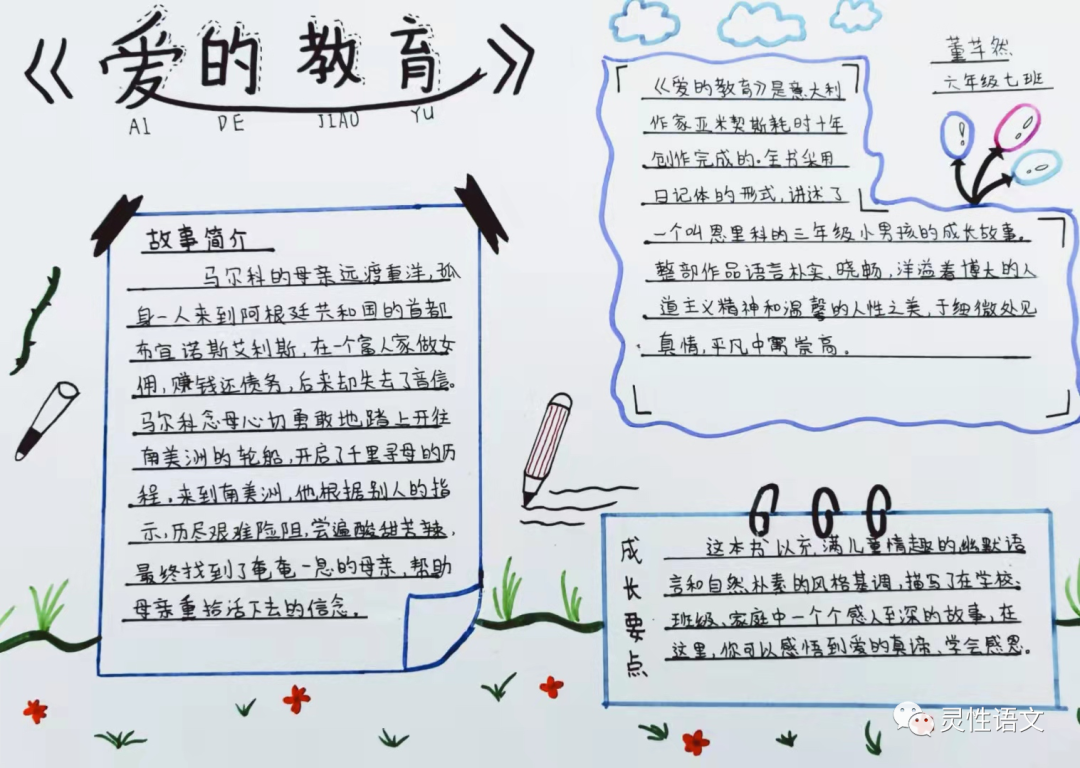 《爱的教育》
AI DE JIAO YU
董芊然
六年级七班
《爱的教育》是意大利
作家亚米契斯耗时十年
创作完成的.全书采用
日记体的形式,讲述了
一个叫恩里科的三年级小男孩的成长故事。
整部作品语言朴实、晓畅,洋溢着博大的人
道主义精神和温馨的人性之美,于细微处见
真情,平凡中寓崇高。
故事简介
马尔科的母亲远渡重洋,孤
身一人来到阿根廷共和国的首都
布宜诺斯艾利斯,在一个富人家做女
佣,赚钱还债务,后来却失去了音信。
马尔科念母心切勇敢地踏上开往
南美洲的轮船,开启了千里寻母的历
程.来到南美洲,他根据别人的指
示,历尽艰难险阻,尝遍酸甜苦辣,
最终找到了奄奄一息的母亲,帮助
母亲重拾活下去的信念。
成长要点
这本书以充满儿童情趣的幽默语
言和自然朴素的风格基调,描写了在学校、
班级、家庭中一个个感人至深的故事,在
这里,你可以感悟到爱的真谛、学会感恩。
灵性语文